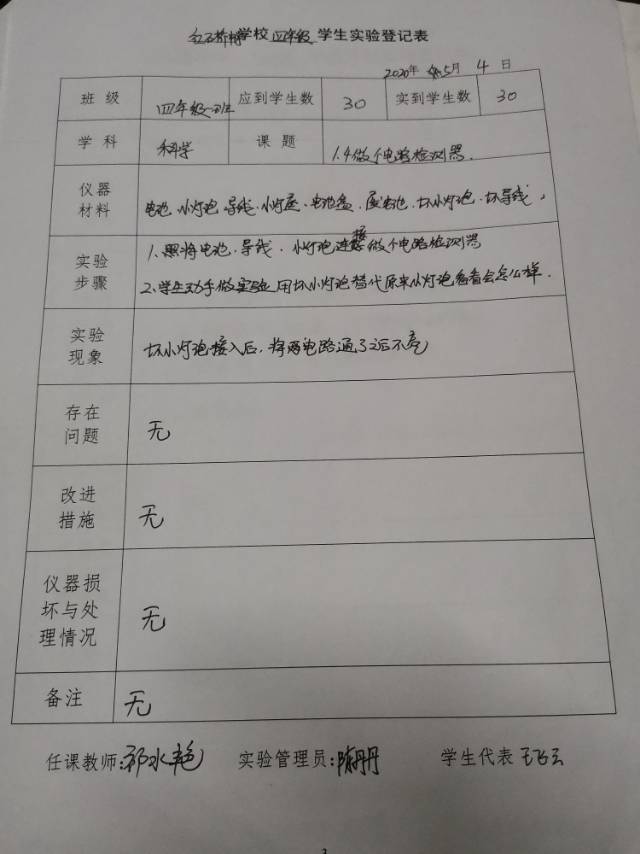 学校 四年级 学生实验登记表
2020年 5月 4 日
班级 四年级一班 应到学生数 30 实到学生数 30
学科 科学 课题 1.4做个电路检测器.
仪器材料 电池.小灯泡.导线.小灯座.电池盒.废电池.坏小灯泡.坏导线,
实验步骤 1.将电池.导线.小灯泡连接做个电路检测器
2.学生动手做实验用坏小灯泡替代原来小灯泡看看会怎么样.
实验现象 坏小灯泡接入后,将两电路通了之后不亮
存在问题 无
改进措施 无
仪器损坏与处理情况 无
备注 无
任课教师:祁水艳 实验管理员:陈丹丹 学生代表 王飞云
3